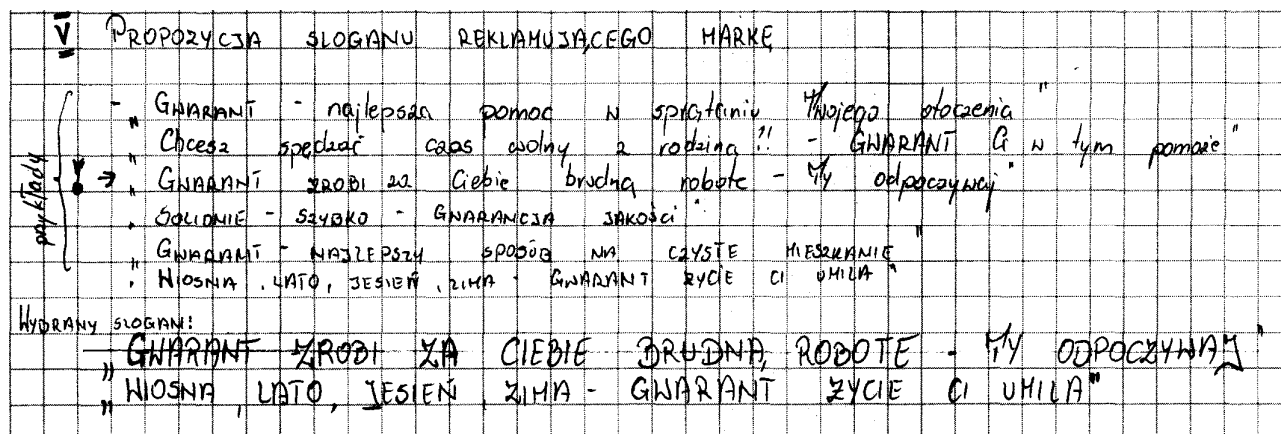 V PROPOZYCJA SLOGANU REKLAMUJĄCEGO MARKĘ
- „GWARANT - najlepsza pomoc w sprzątaniu Twojego otoczenia"
„Chcesz spędzać czas wolny z rodziną?!! - GWARANT Ci w tym pomoże"
→ „GWARANT ZROBI za Ciebie brudną robotę - Ty odpoczywaj"
„SOLIDNIE - SZYBKO - GWARANCJA JAKOŚCI"
„GWARANT - NAJLEPSZY SPOSÓB NA CZYSTE MIESZKANIE"
„WIOSNA, LATO, JESIEŃ, ZIMA - GWARANT ŻYCIE CI UMILA"
przykłady
WYBRANY SLOGAN:
„GWARANT ZROBI ZA CIEBIE BRUDNĄ ROBOTE - TY ODPOCZYWAJ"
„WIOSNA, LATO, JESIEŃ, ZIMA - GWARANT ŻYCIE CI UMILA"